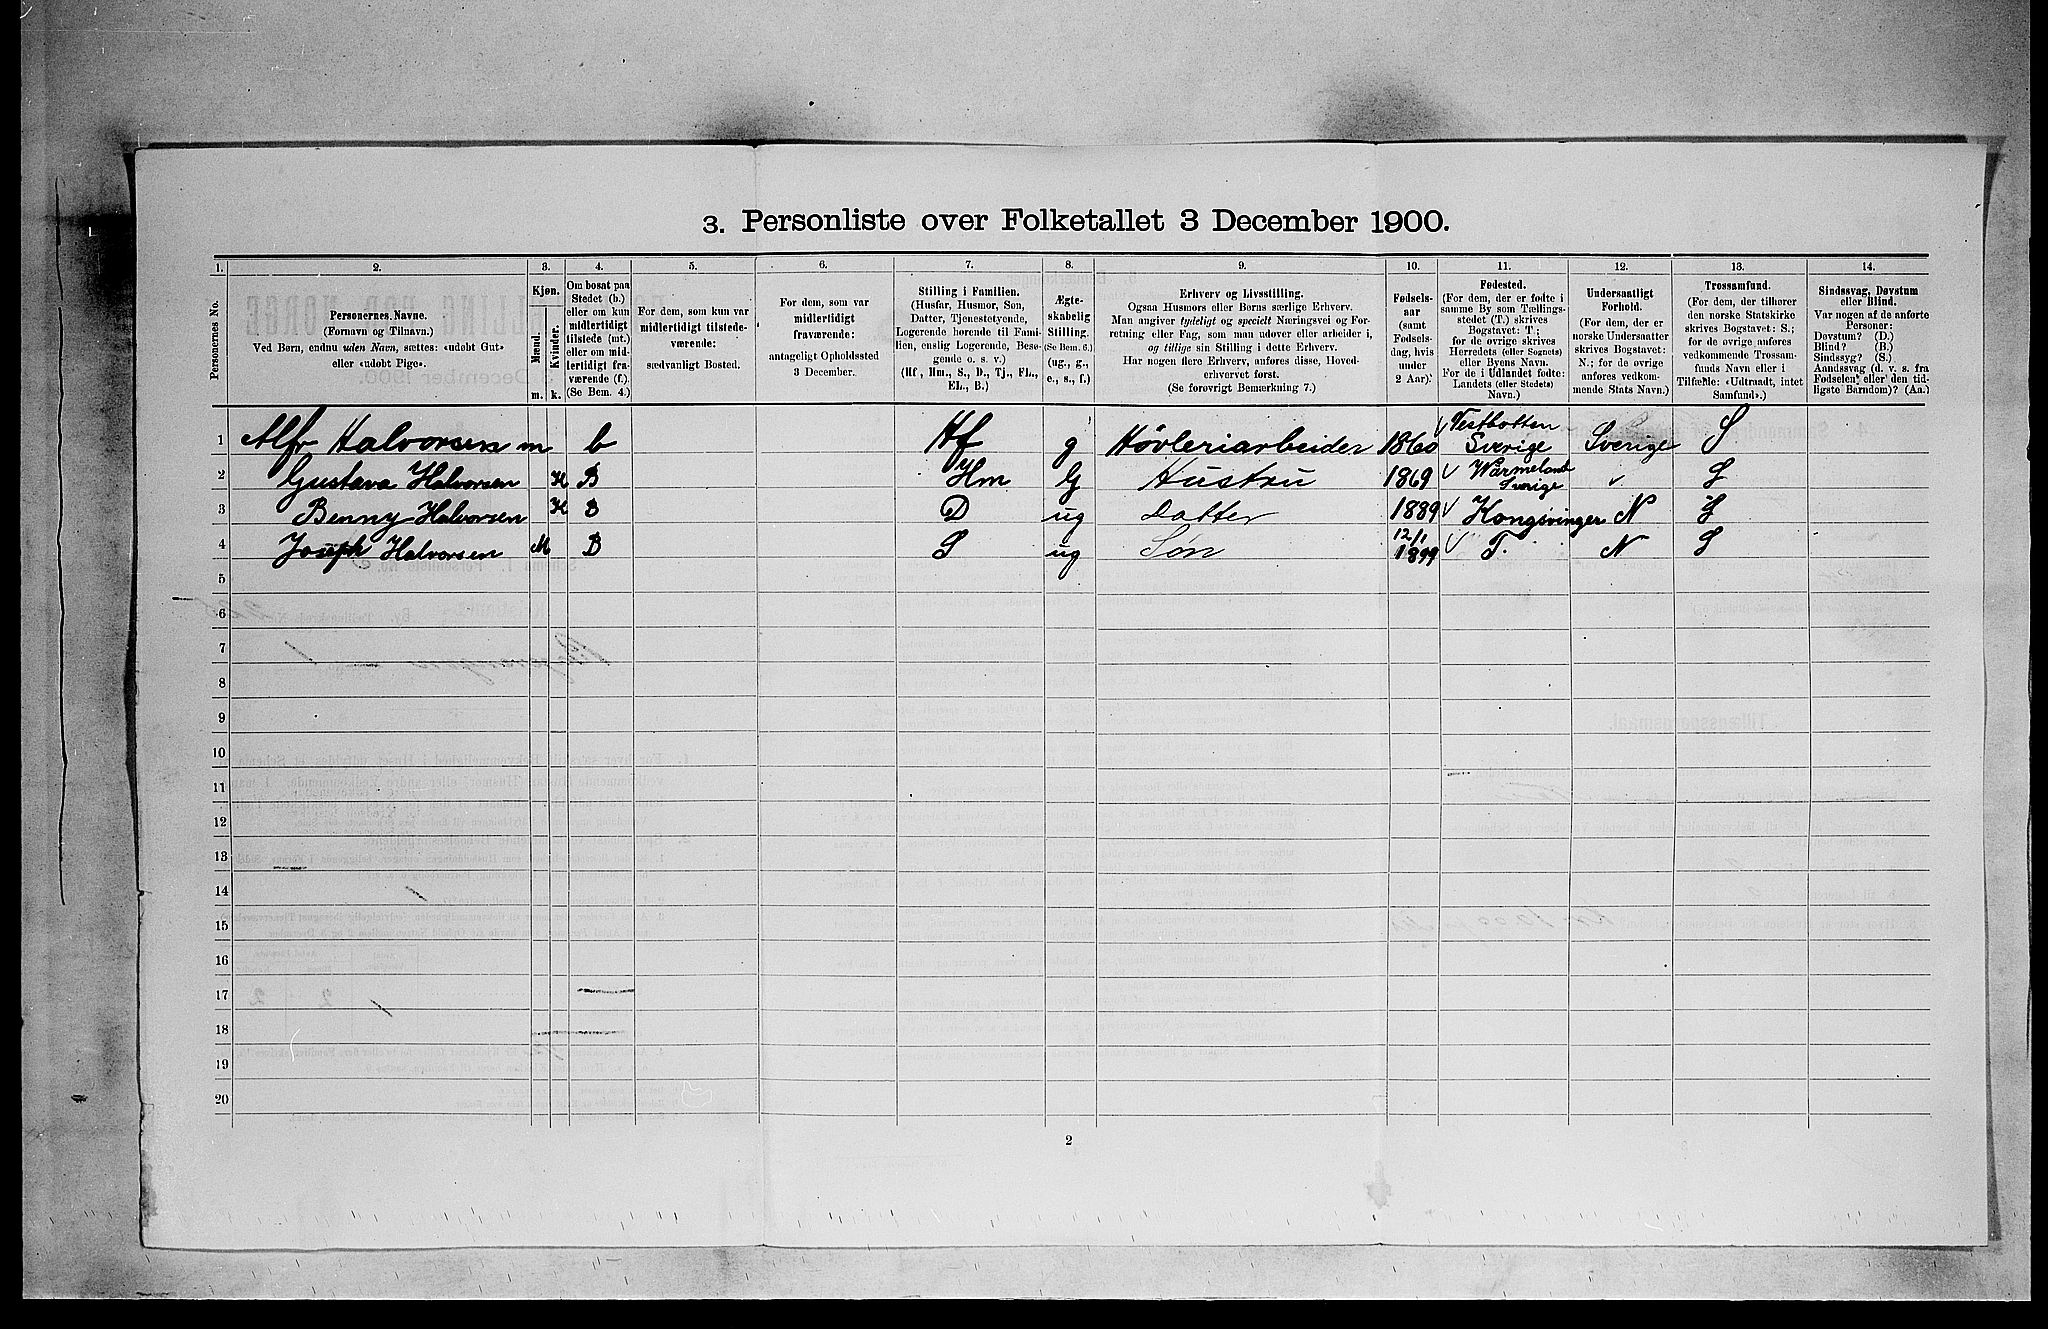 3. Personliste over Folketallet 3 December 1900.
1. 2. 3. 4. 5. 6. 7. 8. 9. 10. 11. 12. 13. 14.
Personernes No.
Personernes Navne.
(Fornavn og Tilnavn.)
Ved Børn, endnu uden Navn, sættes: «udøbt Gut»
eller «udøbt Pige».
Kjøn.
Mænd.
Kvinder.
m. k.
Om bosat paa
Stedet (b.)
eller om kun
midlertidigt
tilstede (mt.)
eller om mid-
lertidigt fra-
værende (f.)
(Se Bem. 4.)
For dem, som kun var
midlertidigt tilstede-
værende:
sædvanligt Bosted.
For dem, som var
midlertidigt
fraværende:
antageligt Opholdssted
3 December.
Stilling i Familien.
(Husfar, Husmor, Søn,
Datter, Tjenestetyende,
Logerende hørende til Fami-
lien, enslig Logerende, Besø-
gende o. s. v.)
(Hf, Hm., S., D., Tj., FL.,
EL., B.)
Ægte-
skabelig
Stilling.
(Se Bem. 6.)
(ug., g.,
e., s., f.)
Erhverv og Livsstilling.
Ogsaa Husmors eller Børns særlige Erhverv.
Man angiver tydeligt og specielt Næringsvei og For-
retning eller Fag, som man udøver eller arbeider i,
og tillige sin Stilling i dette Erhverv.
Har nogen flere Erhverv, anføres disse, Hoved-
erhvervet først.
(Se forøvrigt Bemærkning 7.)
Fødsels-
aar
(samt
Fødsels-
dag, hvis
under
2 Aar).
Fødested.
(For dem, der er fødte i
samme By som Tællings-
stedet (T.) skrives
Bogstavet: T.;
for de øvrige skrives
Herredets (eller Sognets)
eller Byens Navn.
For de i Udlandet fødte:
Landets (eller Stedets)
Navn.)
Undersaatligt
Forhold.
(For dem, der er
norske Undersaatter
skrives Bogstavet:
N.; for de øvrige
anføres vedkom-
mende Stats Navn.)
Trossamfund.
(For dem, der tilhører
den norske Statskirke
skrives Bogstavet: S.;
for de øvrige anføres
vedkommende Trossam-
funds Navn eller i
Tilfælde: «Udtraadt, intet
Samfund».)
Sindssvag, Døvstum
eller Blind.
Var nogen af de anførte
Personer:
Døvstum? (D.)
Blind? (B.)
Sindssyg? (S.)
Aandssvag (d. v. s. fra
Fødselen eller den tid-
ligste Barndom)? (Aa.)
1 Alfr Halvorsen m b Hf g Høvleriarbeider 1860 Vestbotten Sverige Sverige S
2 Gustava Halvorsen K B Hm G Hustru 1869 Warmeland Sverige " S
3 Benny Halvorsen K B D ug Datter 1889 Kongsvinger N S
4 Joseph Halvorsen M B S ug Søn 12/1 1899 T. N S
5
6
7
8
9
10
11
12
13
14
15
16
17
18
19
20
2